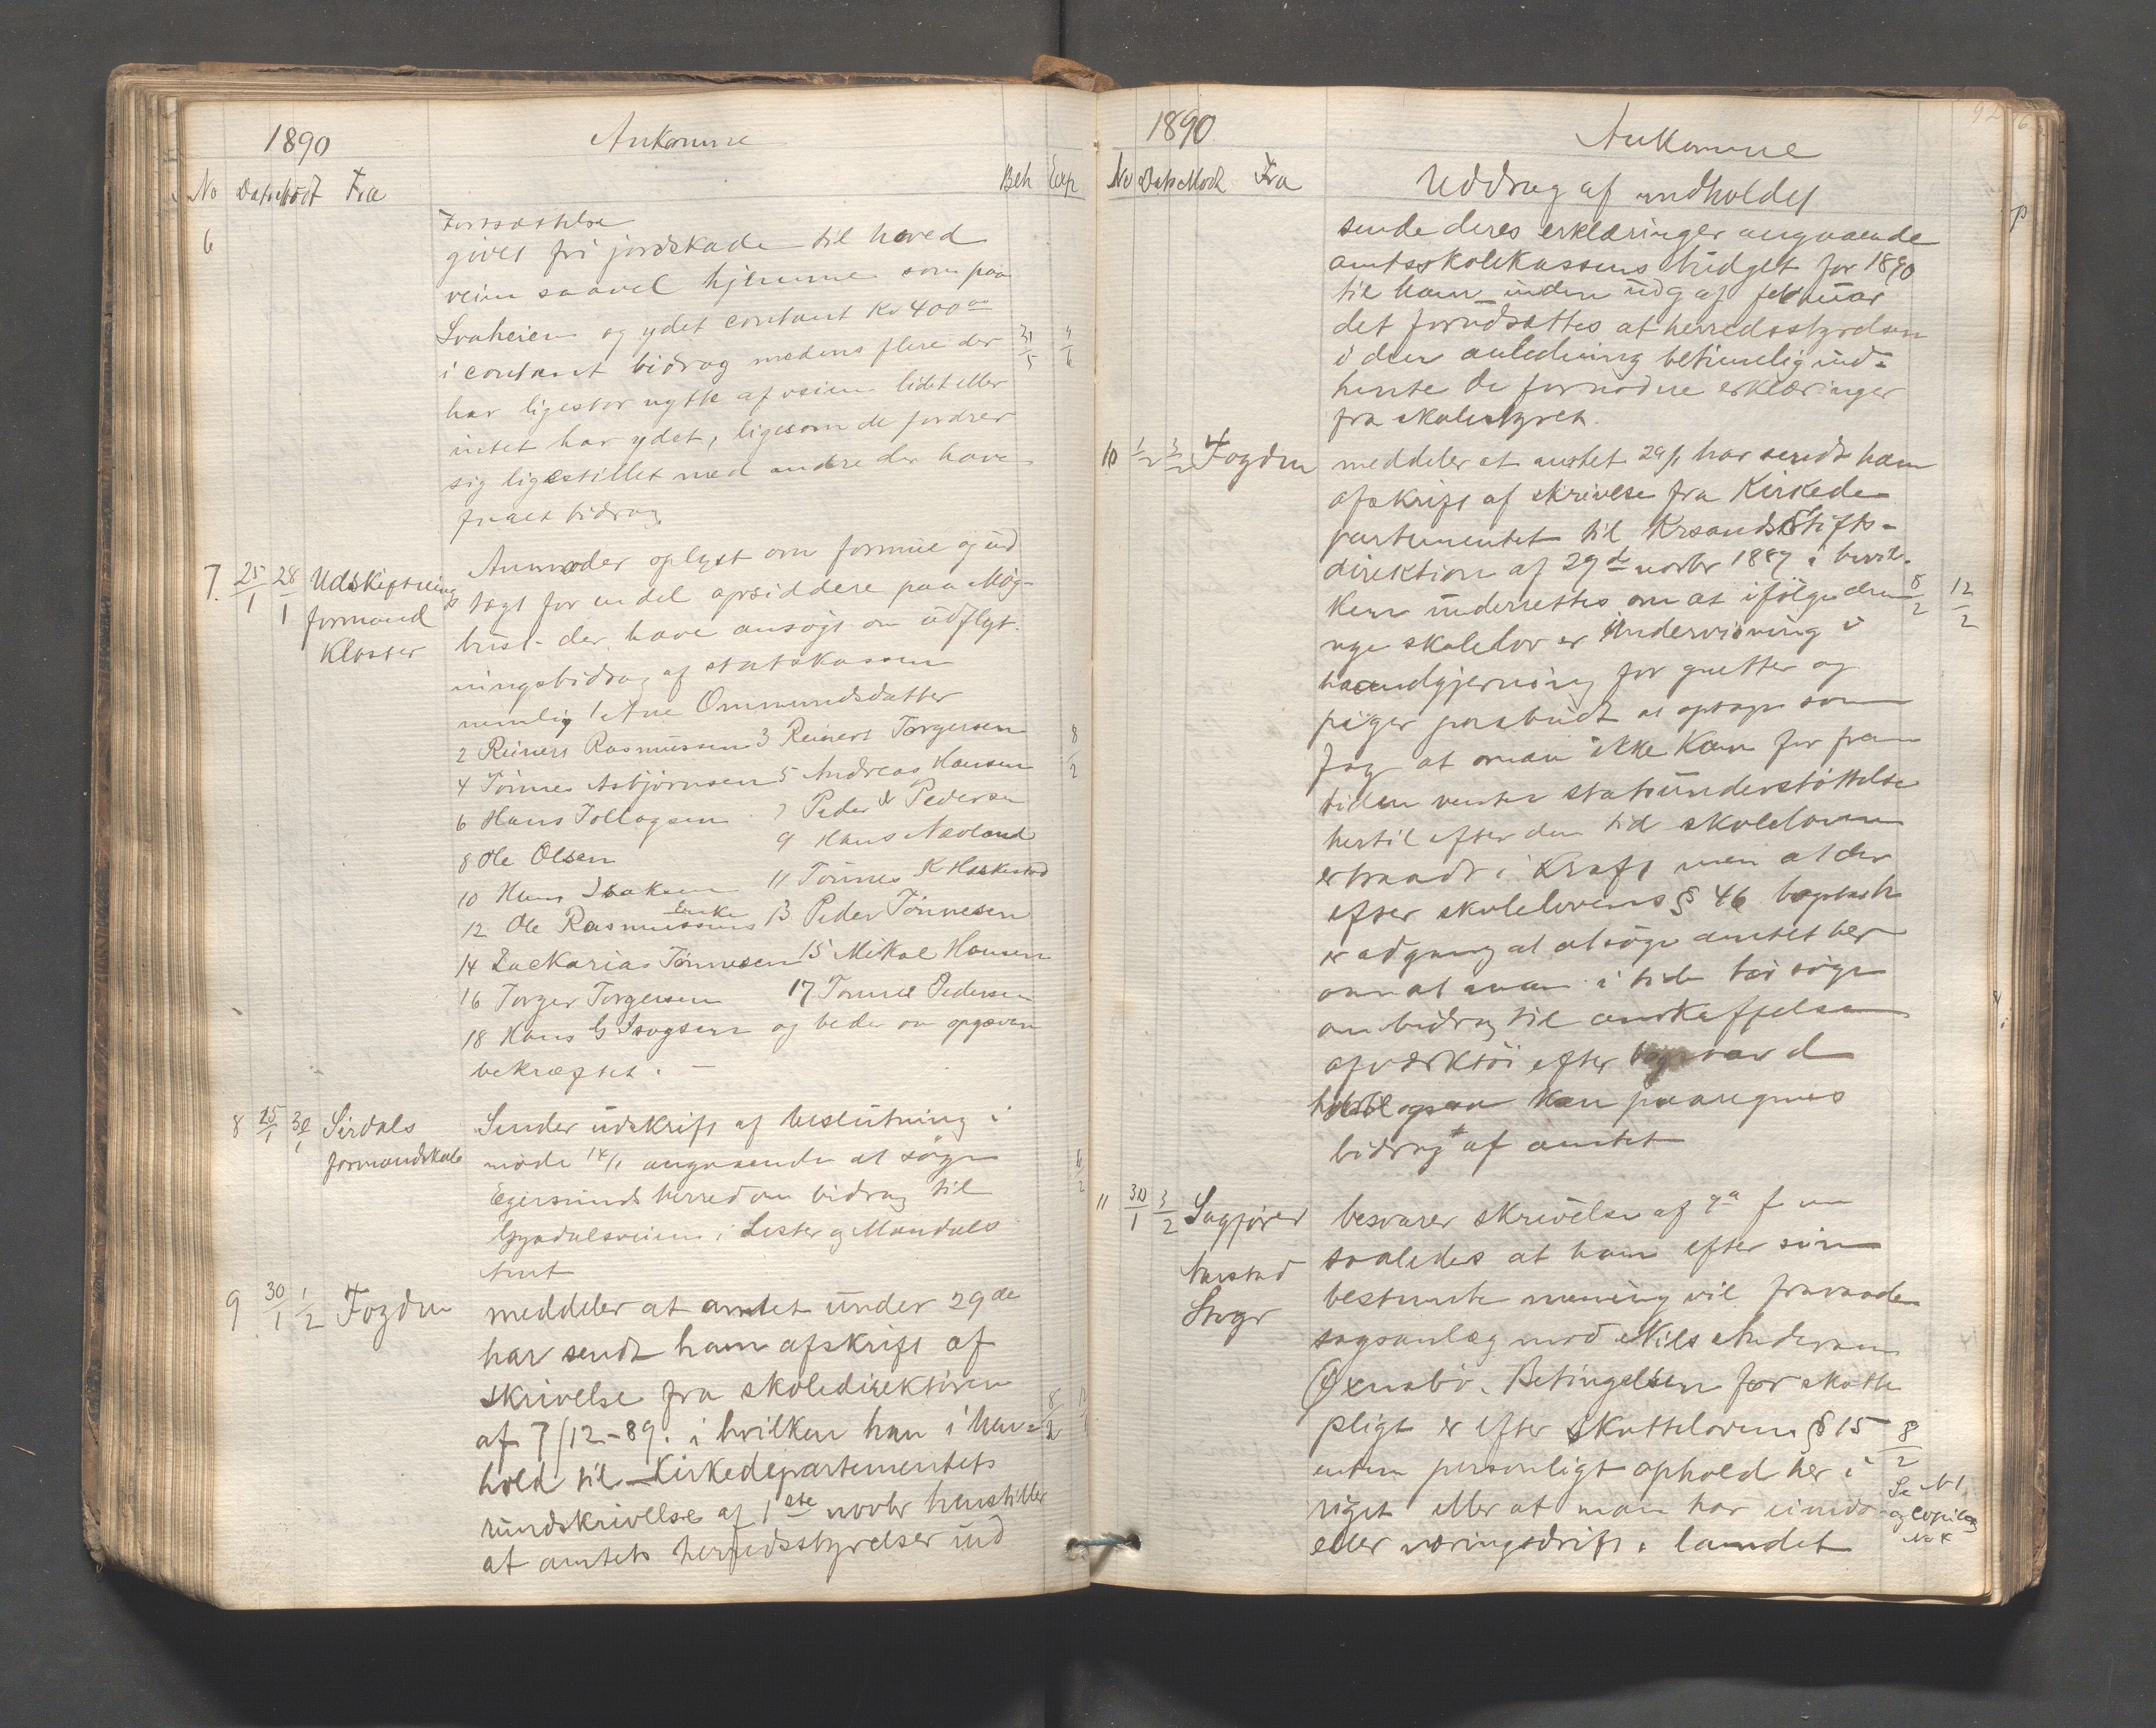 1890 Ankomne
No Dato Modt Fra Beh Exp
6 Fortsættelse
givet fri jordskade til hoved
veien saavel hjemme som paa
Svaheien og ydet contant Kr 400 00
i contant bidrag medens flere der 31/5 4/6
har ligestor nytte af veien lidet eller
intet har ydet, ligesom de fordrer
sig ligestillet med andre der have
faaet bidrag
7. 25/1 28/1 Udskiftnings Anmoder oplyst om formue og ind
formand tægt for endel opsiddere paa Møg-
Kloster bust. der have ansøgt om udflyt-
ningsbidrag af statskassen
nemlig 1 Ane Ommundsdatter
2 Reinert Rasmussen 3 Reinert Torgersen 8/2
4 Tönnes Asbjørnsen 5 Andreas Hansen
6 Hans Tollagsen 7 Peder Pedersen
8 Ole Olsen 9 Hans Nævland
10 Hans Isaksen 11 Tönnes K Haskestad
12 Ole Rasmussens Enke 13 Peder Tönnesen
14 Zackarias Tönnesen 15 Mikal Hansen
16 Torger Torgersen 17 Tönnes Pedersen
18 Hans G og beder om opgaven
bekræftet. —
8 25/1 30/1 Sirdals Sender udskrift af beslutning i
formandskab møde 14/1 angaaende at søge 6/2
Egersunds herred om bidrag til
Gyadalsveien i Lister og Mandals
Amt
9 30/1 1/2 Fogden meddeler at amtet under 29de
har sendt ham afskrift af
skrivelse fra skoledirektören
af 7/12-89. i hvilken han i hen- 8/2
hold til Kirkedepartementets
rundskrivelse af 1ste novbr henstiller
at amtets herredsstyrelser ind
1890 Ankomne
No Dato Mod Fra Uddrag af indholdet
sende deres erklæringer angaaende
amtsskolekassens budget for 1890
til ham inden udg af februar
det forudsættes at herredsstyrelsen
i den anledning betimelig ind-
hente de fornødne erklæringer
fra skolestyret.
10 1/2 3/2 Fogden meddeler at amtet 29/1 har sendt ham
afskrift af skrivelse fra Kirkede
partementet til Krsands Stifts-
direktion af 29de novbr 1889 i hvil-
ken underrettes om at ifølge den 8/2 12/2
nye skolelov er Undervisning i
haandgjerning for gutter og
piger paabudt at optage som
fag at man ikke kan for frem
tiden vente statsunderstøttelse
hertil efter den tid skoleloven
er traadt i Kraft men at der
efter skolelovens § 46
er adgang at ansøge amtet her
om at man i tide bør søge
om bidrag til anskaffelse
af værktøi efter
hertil ogsaa kan paaregnes
bidrag af amtet
11 30/1 3/2 Sagfører besvarer skrivelse af 9a f m
Aarstad saaledes at han efter sin
Stvgr bestemte mening vil fraraade
sagsanlæg mod Nils Andersen
Øxnabö. Betingelsen for skatte
pligt er efter Skatteloven § 15 8/2
enten personligt ophold her i
riget eller at man har eiendo Se N 1
eller næringsdrift i landet og Copibog No 4